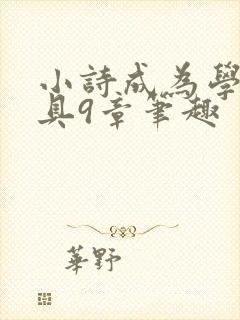 小詩成為學
具9章筆趣
華野